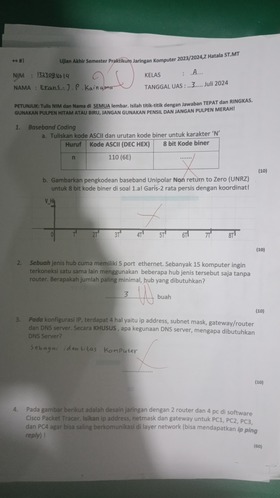 Ujian Akhir Semester Praktikum Jaringan Komputer 2023/2024,2 Hatala ST.MT
NIM :
KELAS : A
NAMA : J. P. Kainama
TANGGAL UAS : 3 Juli 2024
PETUNJUK: Tulis NIM dan Nama di SEMUA lembar. Isilah titik-titik dengan jawaban TEPAT dan RINGKAS.
GUNAKAN PULPEN HITAM ATAU BIRU, JANGAN GUNAKAN PENSIL DAN JANGAN PULPEN MERAH!
1. Baseband Coding
a. Tuliskan kode ASCII dan urutan kode biner untuk karakter 'N'
Huruf Kode ASCII (DEC HEX) 8 bit Kode biner
N 110 (6E)
(10)
b. Gambarkan pengkodean baseband Unipolar Non return to Zero (UNRZ)
untuk 8 bit kode biner di soal 1.a! Garis-2 rata persis dengan koordinat!
0 T 2T 3T 4T 5T 6T 7T 8T
(10)
2. Sebuah jenis hub cuma memiliki 5 port ethernet. Sebanyak 15 komputer ingin
terkoneksi satu sama lain menggunakan beberapa hub jenis tersebut saja tanpa
router. Berapakah jumlah paling minimal, hub yang dibutuhkan?
3 buah
(10)
3. Pada konfigurasi IP, terdapat 4 hal yaitu ip address, subnet mask, gateway/router
dan DNS server. Secara KHUSUS, apa kegunaan DNS server, mengapa dibutuhkan
DNS Server?
Sebagai identitas Komputer
(10)
4. Pada gambar berikut adalah desain jaringan dengan 2 router dan 4 pc di software
Cisco Packet Tracer. Isikan ip address, netmask dan gateway untuk PC1, PC2, PC3,
dan PC4 agar bisa saling berkomunikasi di layer network (bisa mendapatkan ip ping
reply) !